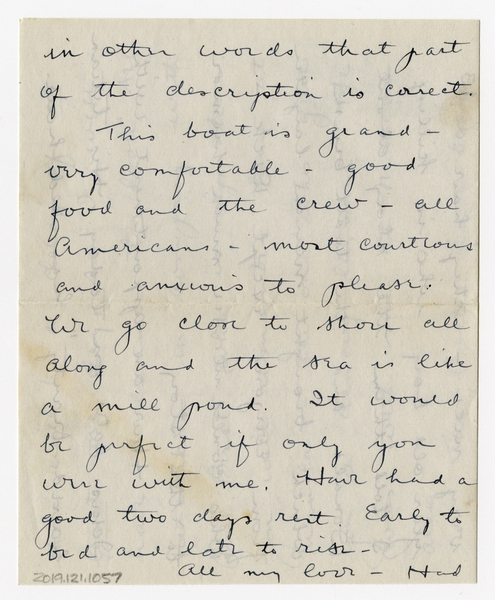 in other words that part
of the description is correct.
This boat is grand -
very comfortable - good
food and the crew - all
Americans - most courteous
and anxious to please.
We go close to shore all
along and the sea is like
a mill pond. It would
be perfect if only you
were with me. Have had a
good two days rest. Early to
bed and late to rise -
All my love - Had
2019.121.1057